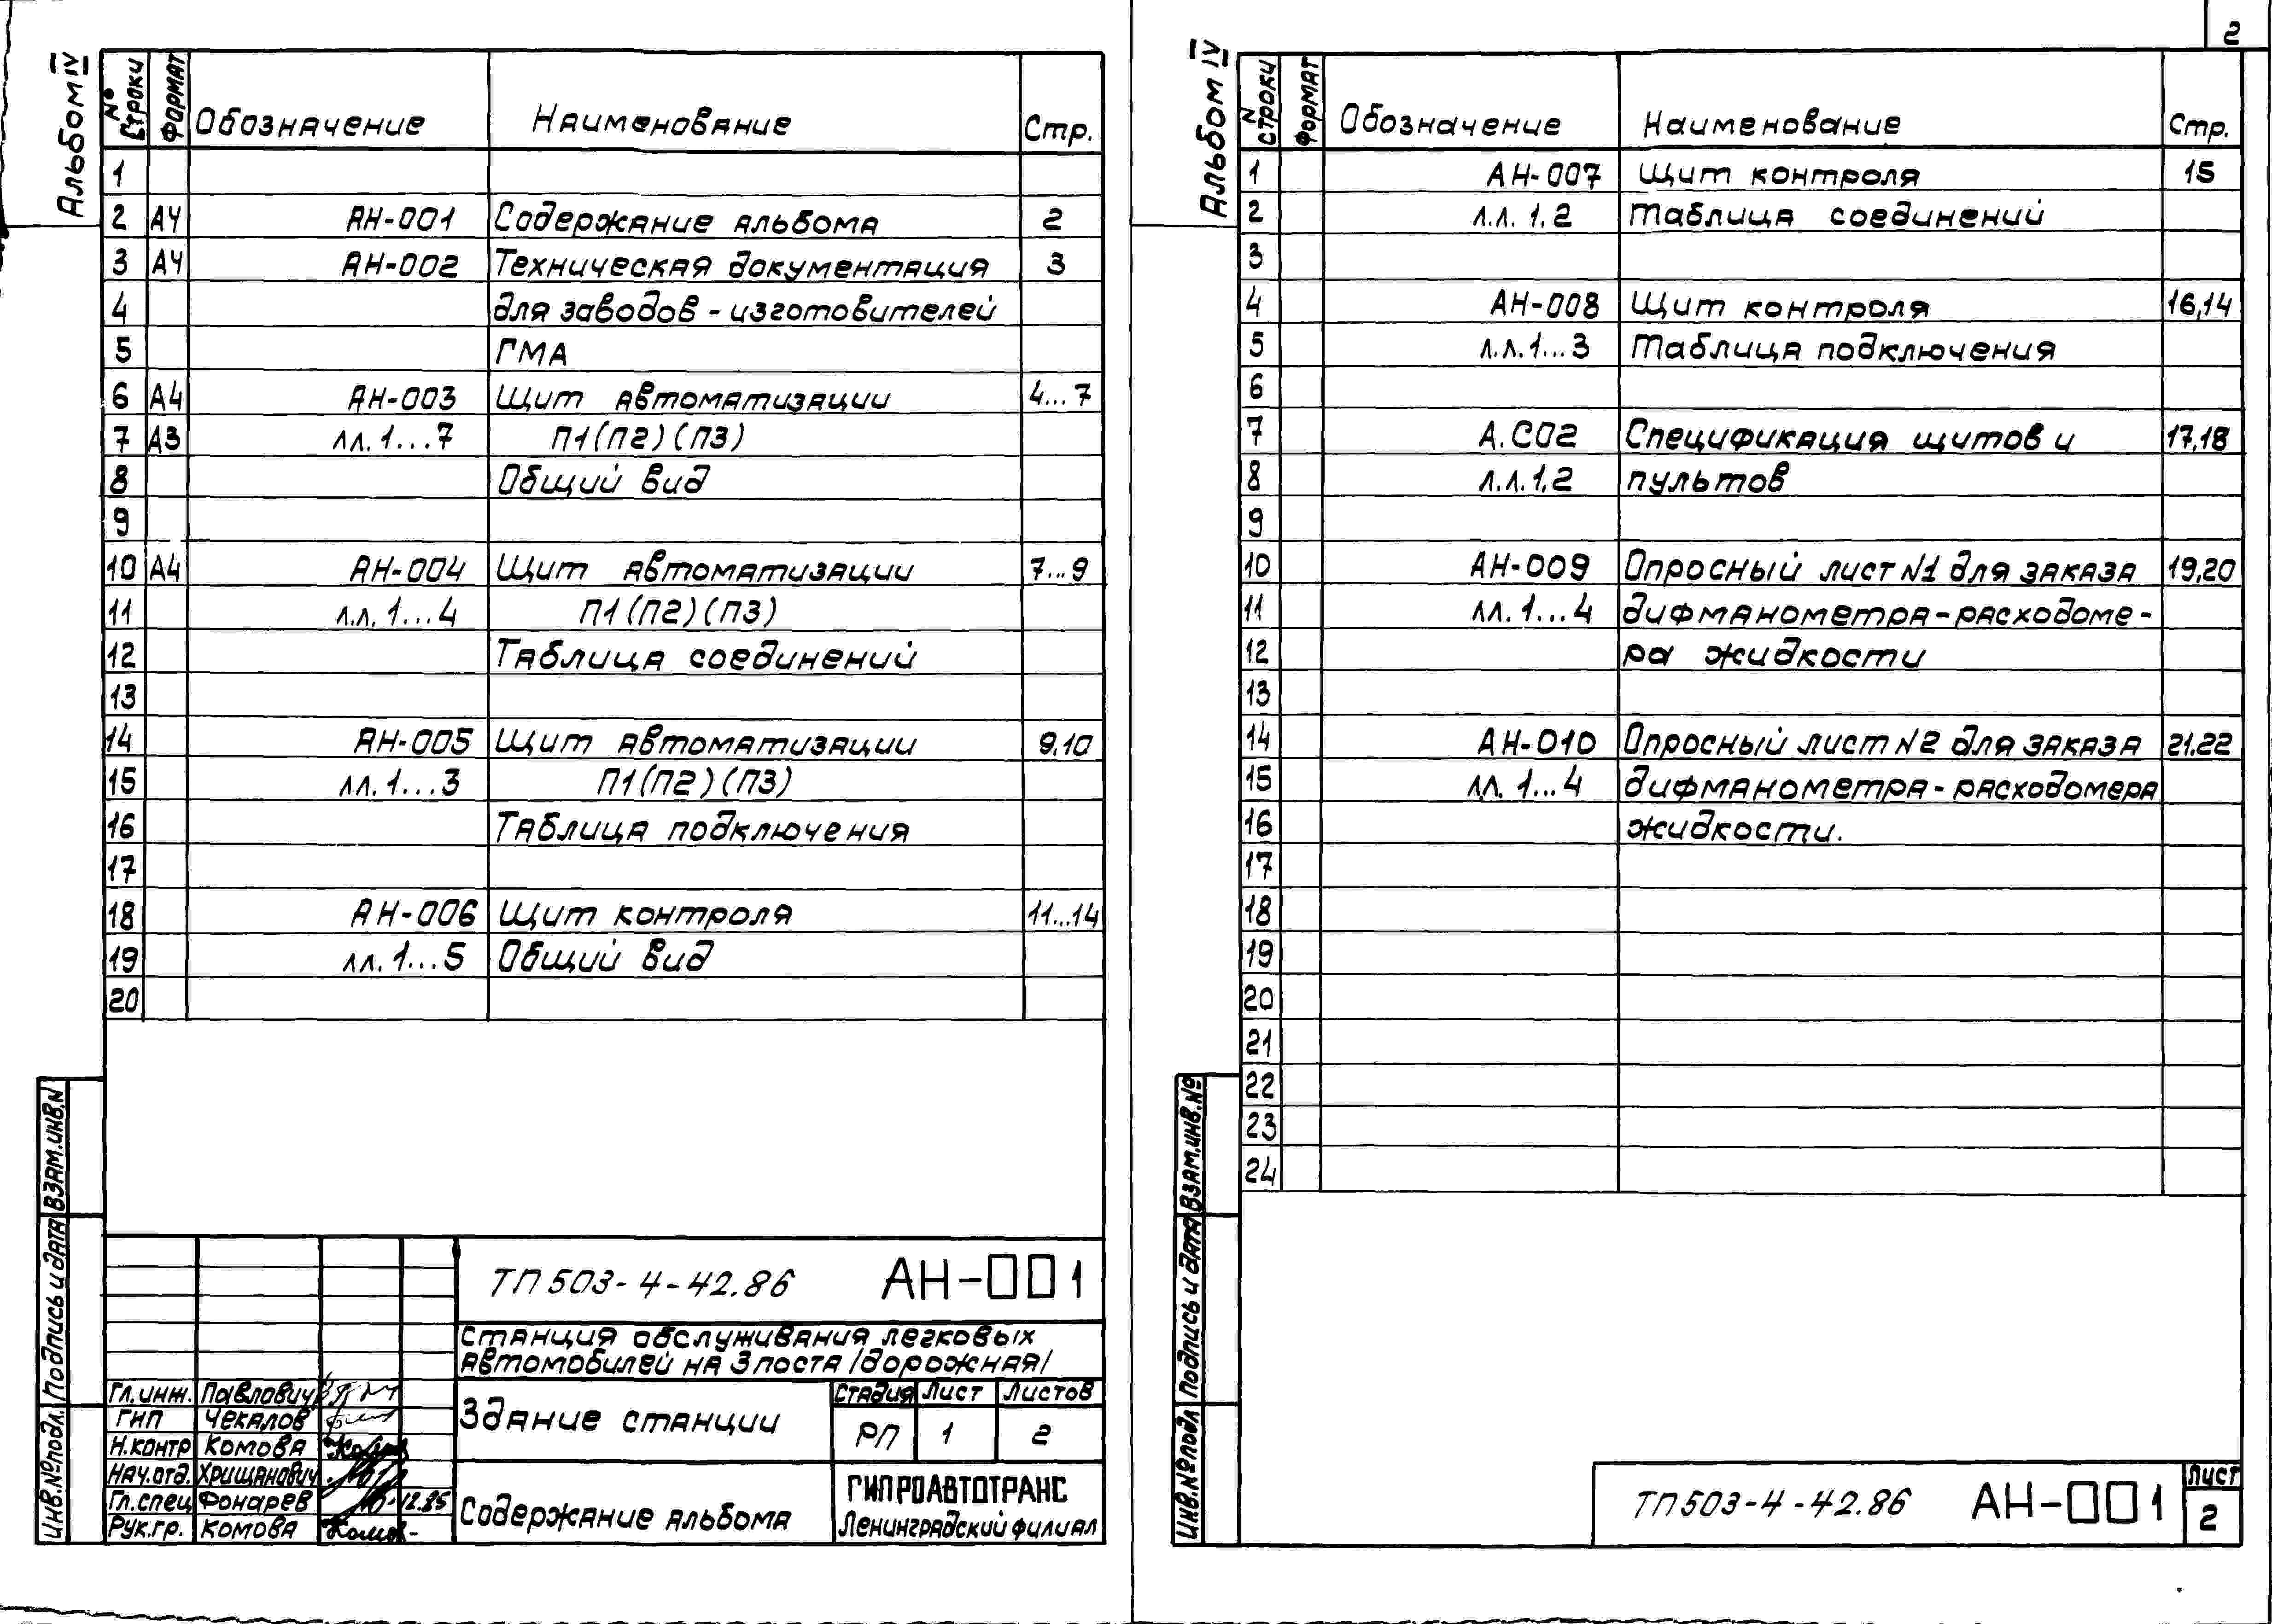 2
Альбом IV
№ строки Формат Обозначение Наименование Стр.
1
2 А4 АН-001 Содержание альбома 2
3 А4 АН-002 Техническая документация 3
4 для заводов - изготовителей
5 ГМА
6 А4 АН-003 Щит автоматизации 4...7
7 А3 лл. 1...7 П1(П2)(П3)
8 Общий вид
9
10 А4 АН-004 Щит автоматизации 7...9
11 л.л. 1...4 П1(П2)(П3)
12 Таблица соединений
13
14 АН-005 Щит автоматизации 9,10
15 лл. 1...3 П1(П2)(П3)
16 Таблица подключения
17
18 АН-006 Щит контроля 11...14
19 лл. 1...5 Общий вид
20
Взам.инв.N
Подпись и дата
Инв.№подл.
ТП 503-4-42.86 АН-001
Станция обслуживания легковых
автомобилей на 3 поста /дорожная/
Гл.инж. Павлович
ГИП Чекалов
Н.контр Комова
Нач.отд. Хрищанович
Гл.спец Фонарев 12.85
Рук.гр. Комова
Здание станции
Стадия Лист Листов
РП 1 2
Содержание альбома
ГИПРОАВТОТРАНС
Ленинградский филиал
Альбом IV
N строки Формат Обозначение Наименование Стр.
1 АН-007 Щит контроля 15
2 л.л. 1,2 Таблица соединений
3
4 АН-008 Щит контроля 16,14
5 л.л. 1...3 Таблица подключения
6
7 А.С02 Спецификация щитов и 17,18
8 л.л. 1,2 пультов
9
10 АН-009 Опросный лист N1 для заказа 19,20
11 лл. 1...4 дифманометра-расходоме-
12 ра жидкости
13
14 АН-010 Опросный лист N2 для заказа 21,22
15 лл. 1...4 дифманометра-расходомера
16 жидкости.
17
18
19
20
21
22
23
24
Взам.инв.№
Подпись и дата
Инв.№подл
ТП 503-4-42.86 АН-001
Лист
2